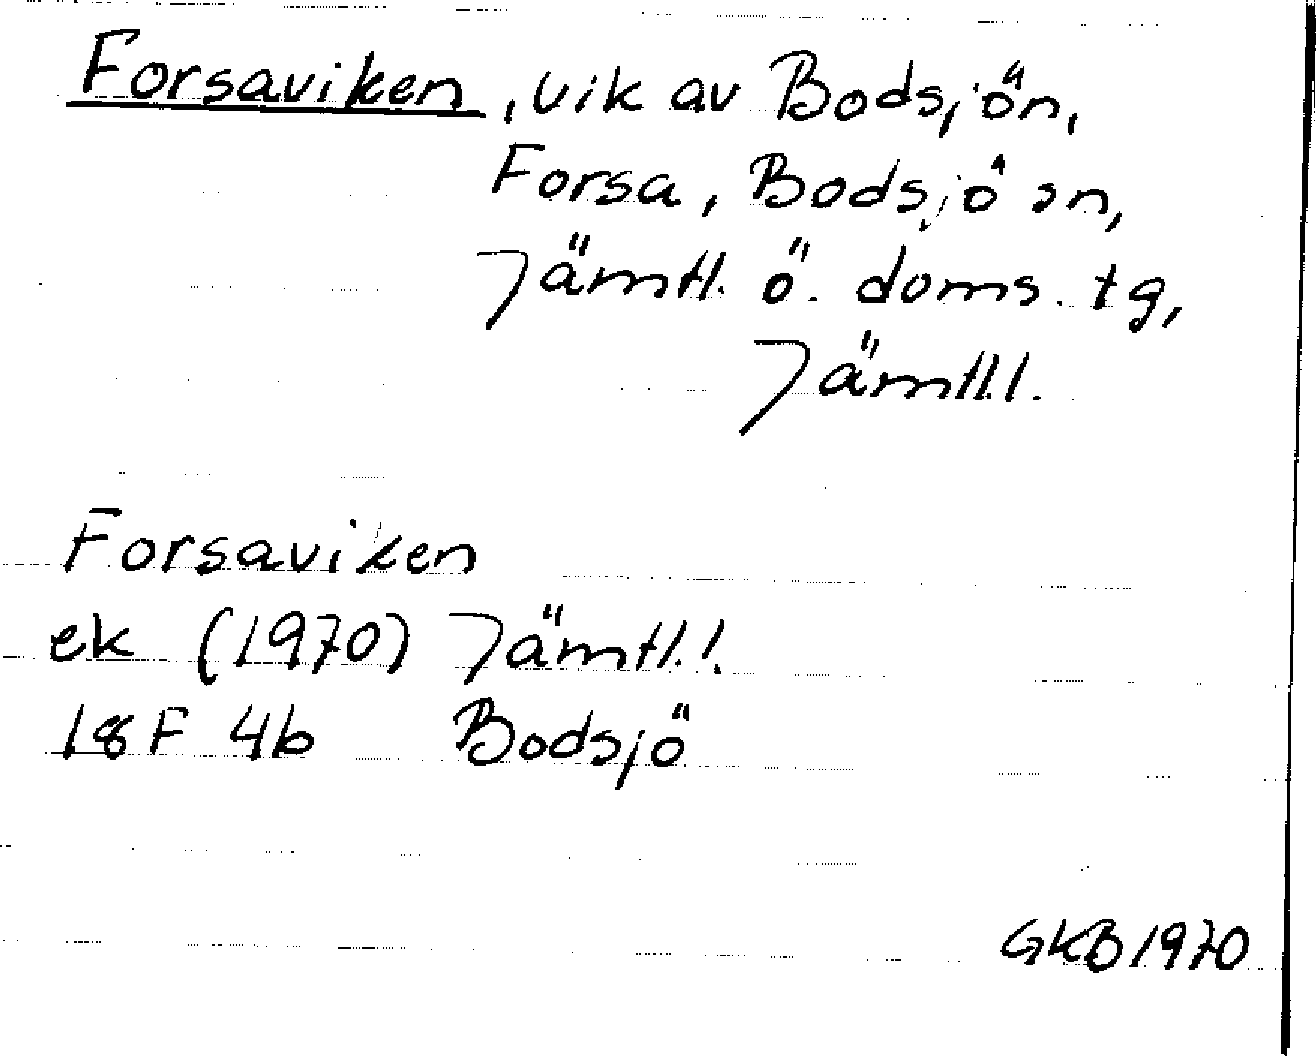 Forsaviken, vik av Bodsjön,
Forsa, Bodsjö sn,
Jämtl. ö. doms. tg,
Jämtl.l.
Forsaviken
ek (1970) Jämtl.l.
18F 4b Bodsjö
GKB 1970